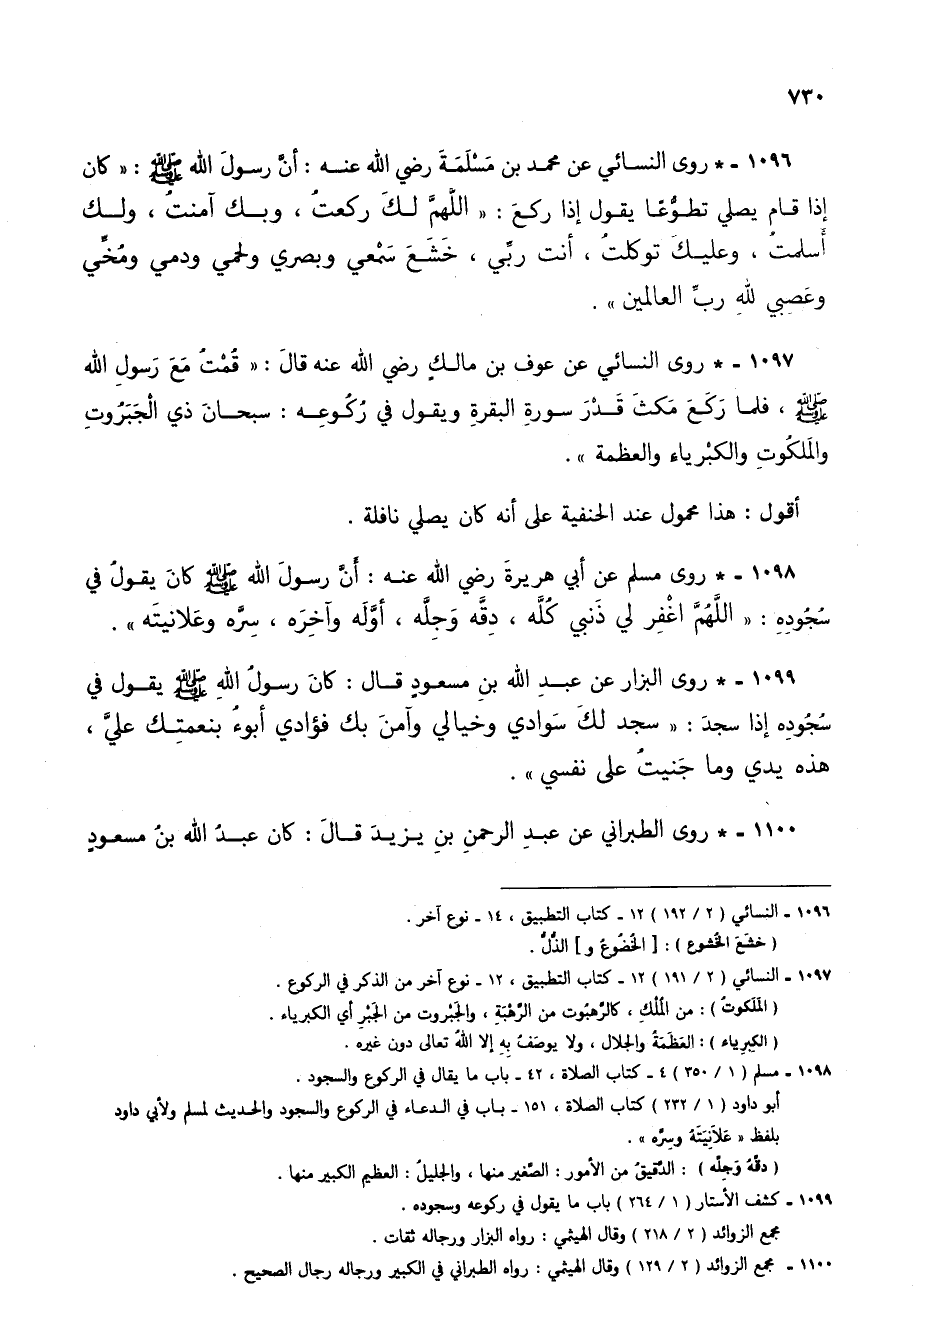 ٧٣٠
١٠٩٦ - * روى النسائي عن محمد بن مَسْلَمَةَ رضي الله عنـه : أنَّ رسولَ الله ﷺ : « كان
إذا قـام يصلي تطوُّعًا يقول إذا ركـعَ : « اللَّهمَّ لـكَ ركعتُ ، وبـك آمنتُ ، ولـك
أسلمتُ ، وعليـكَ توكلتُ ، أنت ربِّي ، خَشَـعَ سَمْعي وبصري ولحمي ودمي ومُخِّي
وعَصبي للهِ ربِّ العالمين » .
١٠٩٧ - * روى النسائي عن عوف بن مالـكٍ رضي الله عنه قالَ : « قُمْتُ مَعَ رَسولِ الله
ﷺ ، فلما رَكَعَ مَكثَ قَـدْرَ سـورةِ البقرةِ ويقول في رُكُوعِـه : سبحـانَ ذي الْجَبَرُوتِ
والمَلكُوتِ والكبْرياء والعظمة » .
أقول : هذا محمول عند الحنفية على أنه كان يصلي نافلة .
١٠٩٨ - * روى مسلم عن أبي هريرةَ رضي الله عنـه : أَنَّ رسولَ الله ﷺ كانَ يقولُ في
سُجُودِهِ : « اللَّهُمَّ اغْفِر لي ذَنبي كُلَّه ، دِقَّه وَجِلَّه ، أوَّلَه وآخِرَه ، سِرَّه وعَلانيتَه » .
١٠٩٩ - * روى البزار عن عبـدِ الله بنِ مسعودٍ قـال : كانَ رسولُ اللهِ ﷺ يقول في
سُجُودِه إذا سجدَ : « سجد لكَ سَوادي وخيالي وآمنَ بك فؤادي أبوءُ بنعمتِـك عليَّ ،
هذه يدي وما جَنيتُ على نفسي » .
١١٠٠ - * روى الطبراني عن عبـدِ الرحمنِ بنِ يـزيـدَ قـالَ : كان عبـدُ الله بنُ مسعـودٍ
١٠٩٦ - النسائي ( ٢ / ١٩٢ ) ١٢ - كتاب التطبيق ، ١٤ - نوع آخر .
( خشَعَ الخُشوع ) : [ الخُضُوعُ و ] الذُّلُّ .
١٠٩٧ - النسائي ( ٢ / ١٩١ ) ١٢ - كتاب التطبيق ، ١٢ - نوع آخر من الذكر في الركوع .
( المَلَكوتُ ) : من المُلْكِ ، كالرَّهبُوت من الرَّهْبَةِ ، والجَبْروت من الجَبْرِ أي الكبرياء .
( الكِبرياء ) : العَظَمَةُ والجلال ، ولا يوصَفُ بِهِ إلا اللهُ تعالى دون غيره .
١٠٩٨ - مسلم ( ١ / ٣٥٠ ) ٤ - كتاب الصلاة ، ٤٢ - باب ما يقال في الركوع والسجود .
أبو داود ( ١ / ٢٣٢ ) كتاب الصلاة ، ١٥١ - بـاب في الدعـاء في الركوع والسجود والحديث لمسلم ولأبي داود
بلفظ « عَلاَنِيَتَهُ وسِرَّه » .
( دقَّهُ وَجِلَّه ) : الدَّقيقُ من الأمور : الصَّغير منها ، والجليلُ : العظيم الكبير منها .
١٠٩٩ - كشف الأستار ( ١ / ٢٦٤ ) باب ما يقول في ركوعه وسجوده .
مجمع الزوائد ( ٢ / ٢١٨ ) وقال الهيثمي : رواه البزار ورجاله ثقات .
١١٠٠ - مجمع الزوائد ( ٢ / ١٢٩ ) وقال الهيثمي : رواه الطبراني في الكبير ورجاله رجال الصحيح .